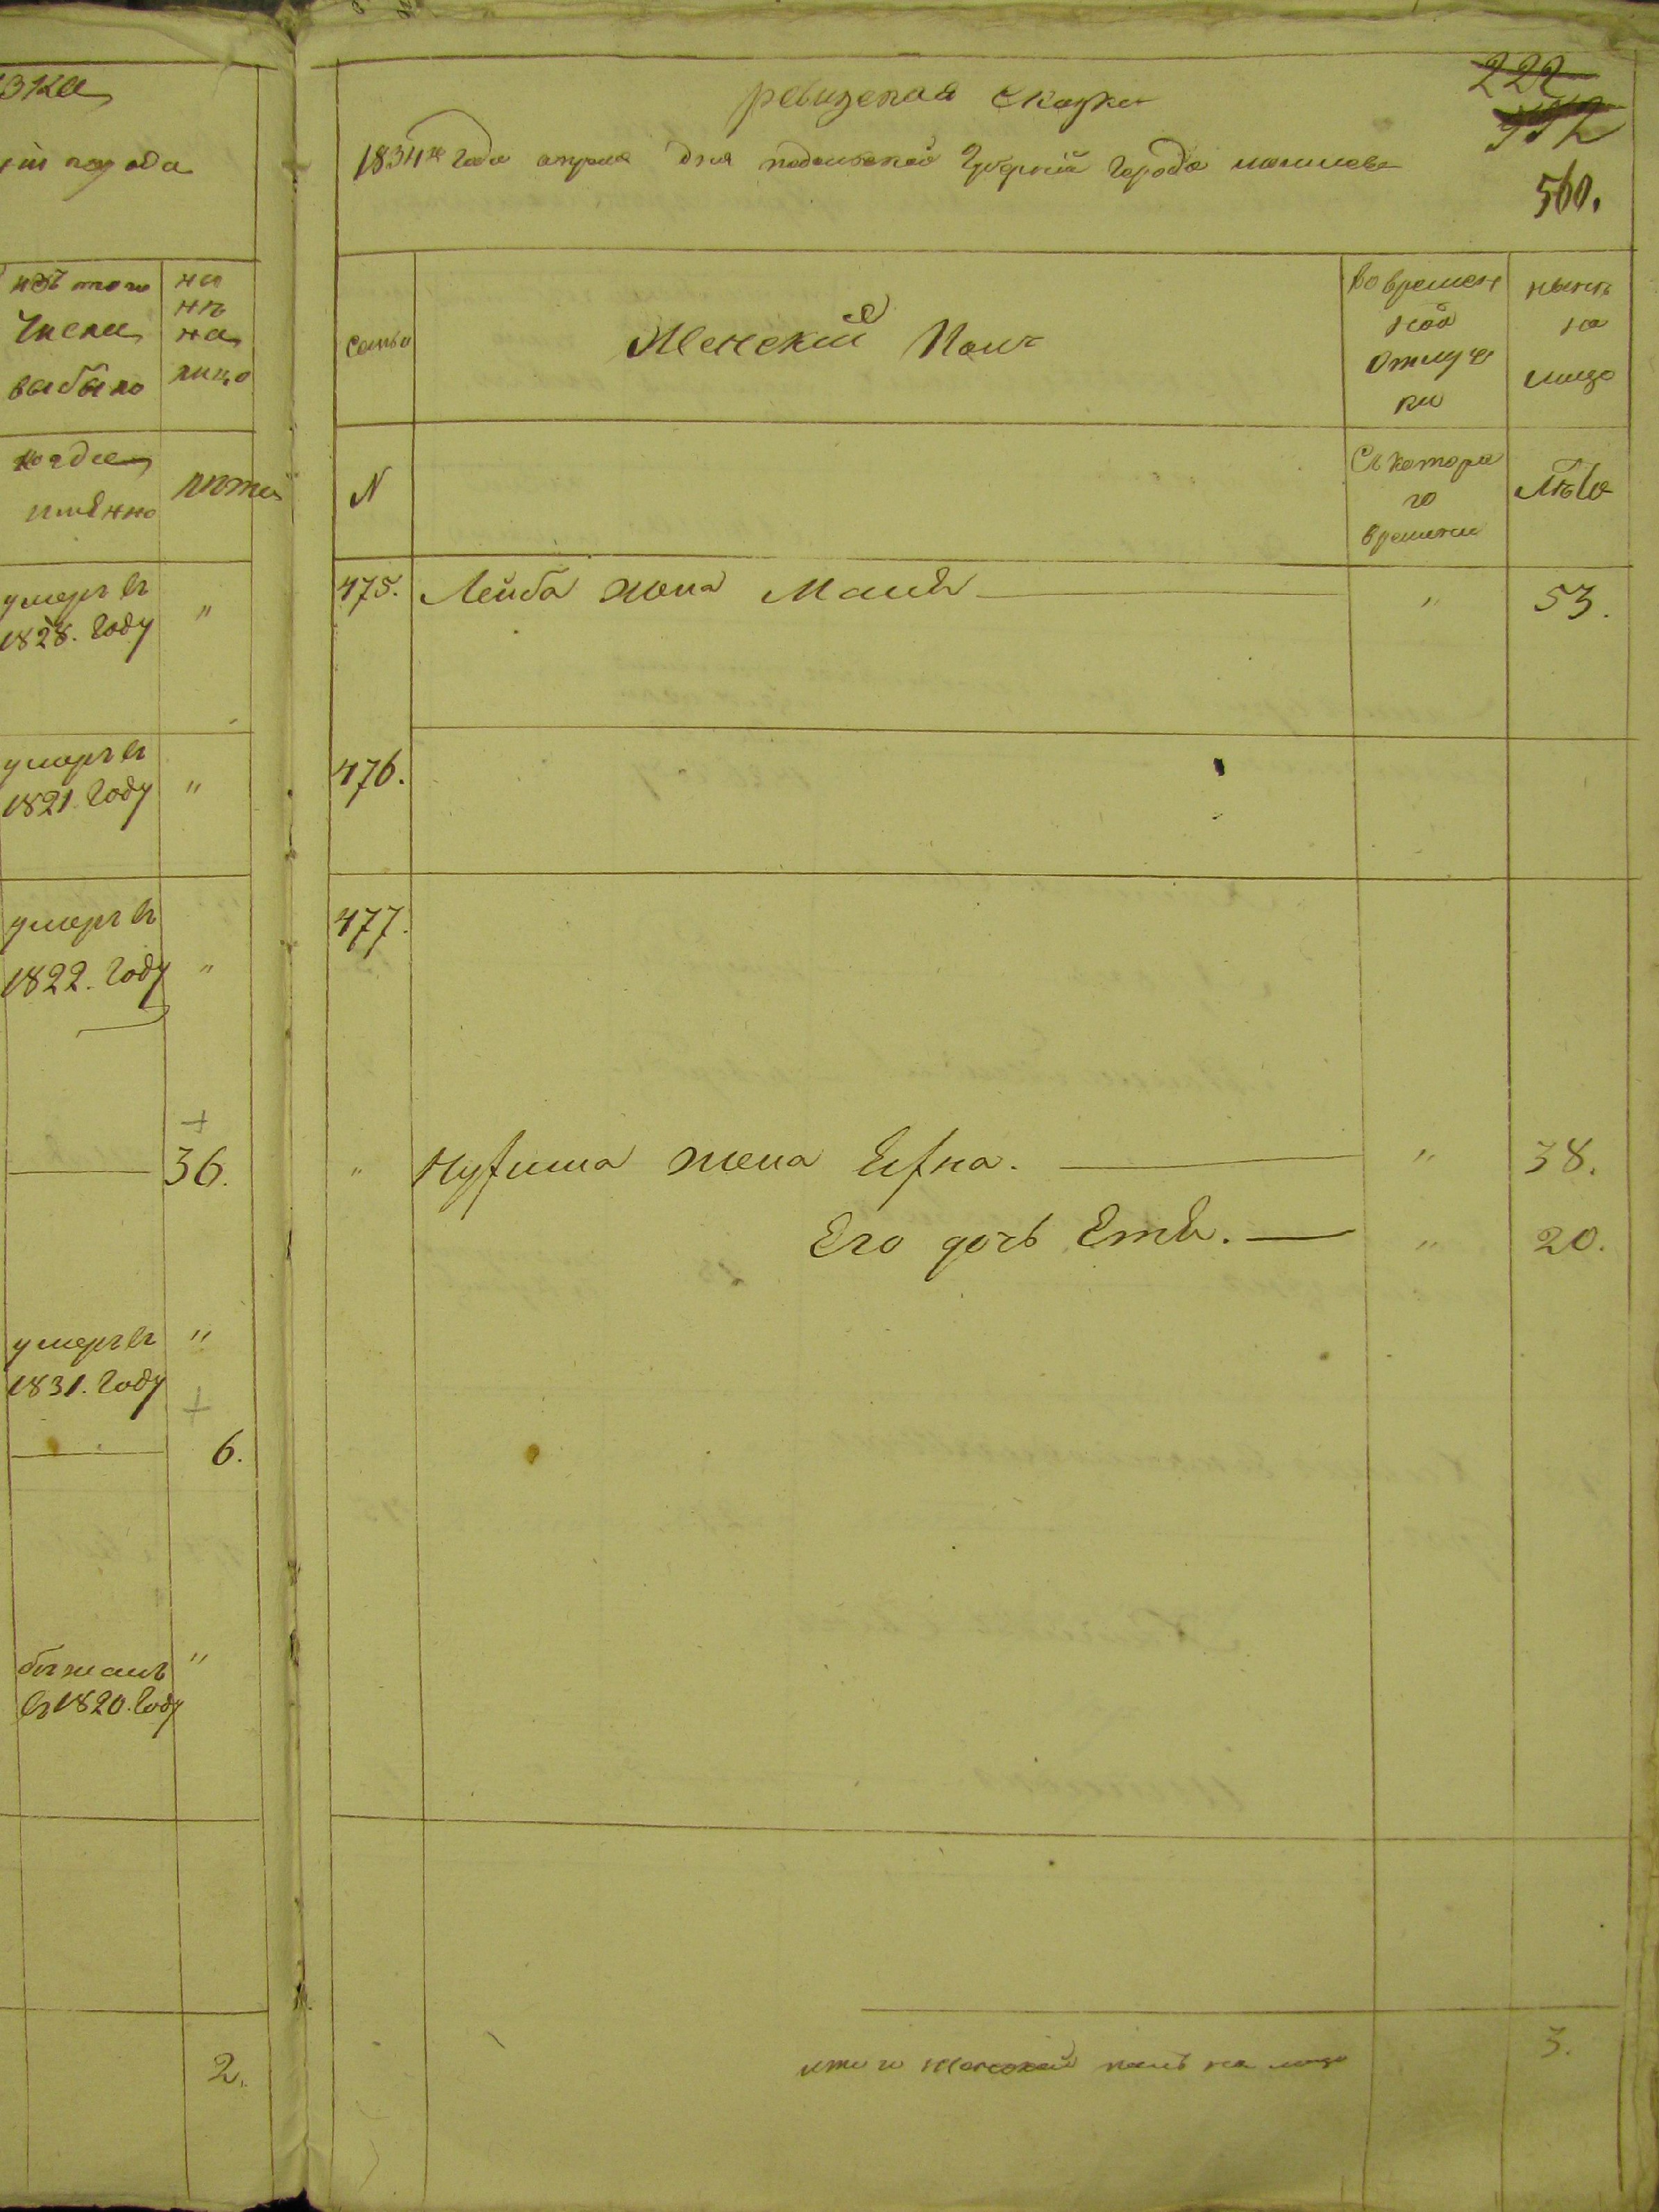 зка
города
изъ того
числа
выбыло
ны
нѣ
на
лицо
когда
имянно
лѣта
умеръ въ
1828. году
"
умеръ въ
1821. году
"
умеръ въ
1822. году
"
36.
умеръ въ
1831. году
"
6.
бѣжалъ
въ 1820. году
"
2.
ревизская сказка
222
560.
1834го года апреля дня подольской губерніи города могилева
семьи
Женский Полъ
во времен
ной
отлуч
ки
нынѣ
на
лицо
N
съ котора
го
времени
Лѣта
475. Лейба жена Маля " 53.
476.
477.
" жена " 38.
Его дочь Етя. " 20.
итого женскаго полъ на лицо 3.